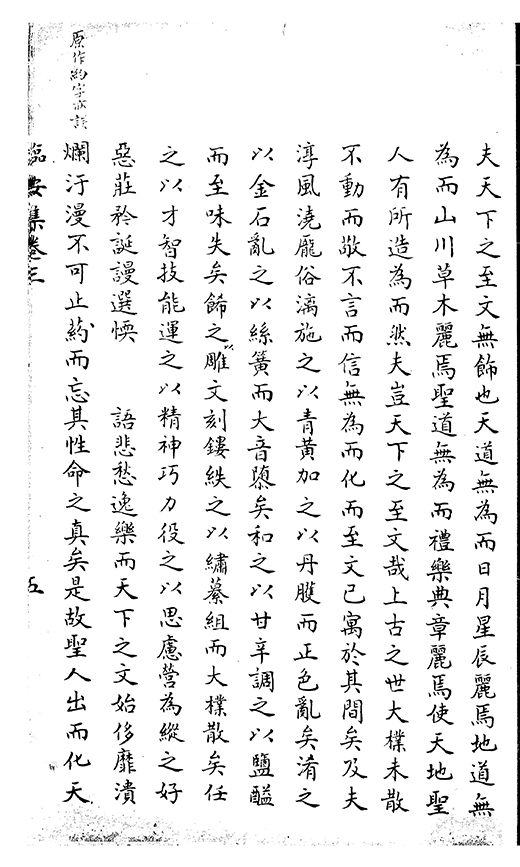 夫天下之至文無飾也天道無為而日月星辰麗焉地道無
為而山川草木麗焉聖道無為而禮樂典章麗焉使天地聖
人有所造為而然夫豈天下之至文哉上古之世大樸未散
不動而敬不言而信無為而化而至文已寓於其間矣及夫
淳風澆龎俗漓施之以青黃加之以丹雘而正色亂矣淆之
以金石亂之以絲簧而大音隱矣和之以甘辛調之以鹽醯
而至味失矣飾之以雕文刻鏤紩之以繡纂組而大樸散矣任
之以才智技能運之以精神巧力役之以思慮營為縱之好
惡莊矜誕謾選愞 語悲愁逸樂而天下之文始侈靡潰
爛汙漫不可止葯而忘其性命之真矣是故聖人出而化天
臨安集卷三 五
原作約字亦誤